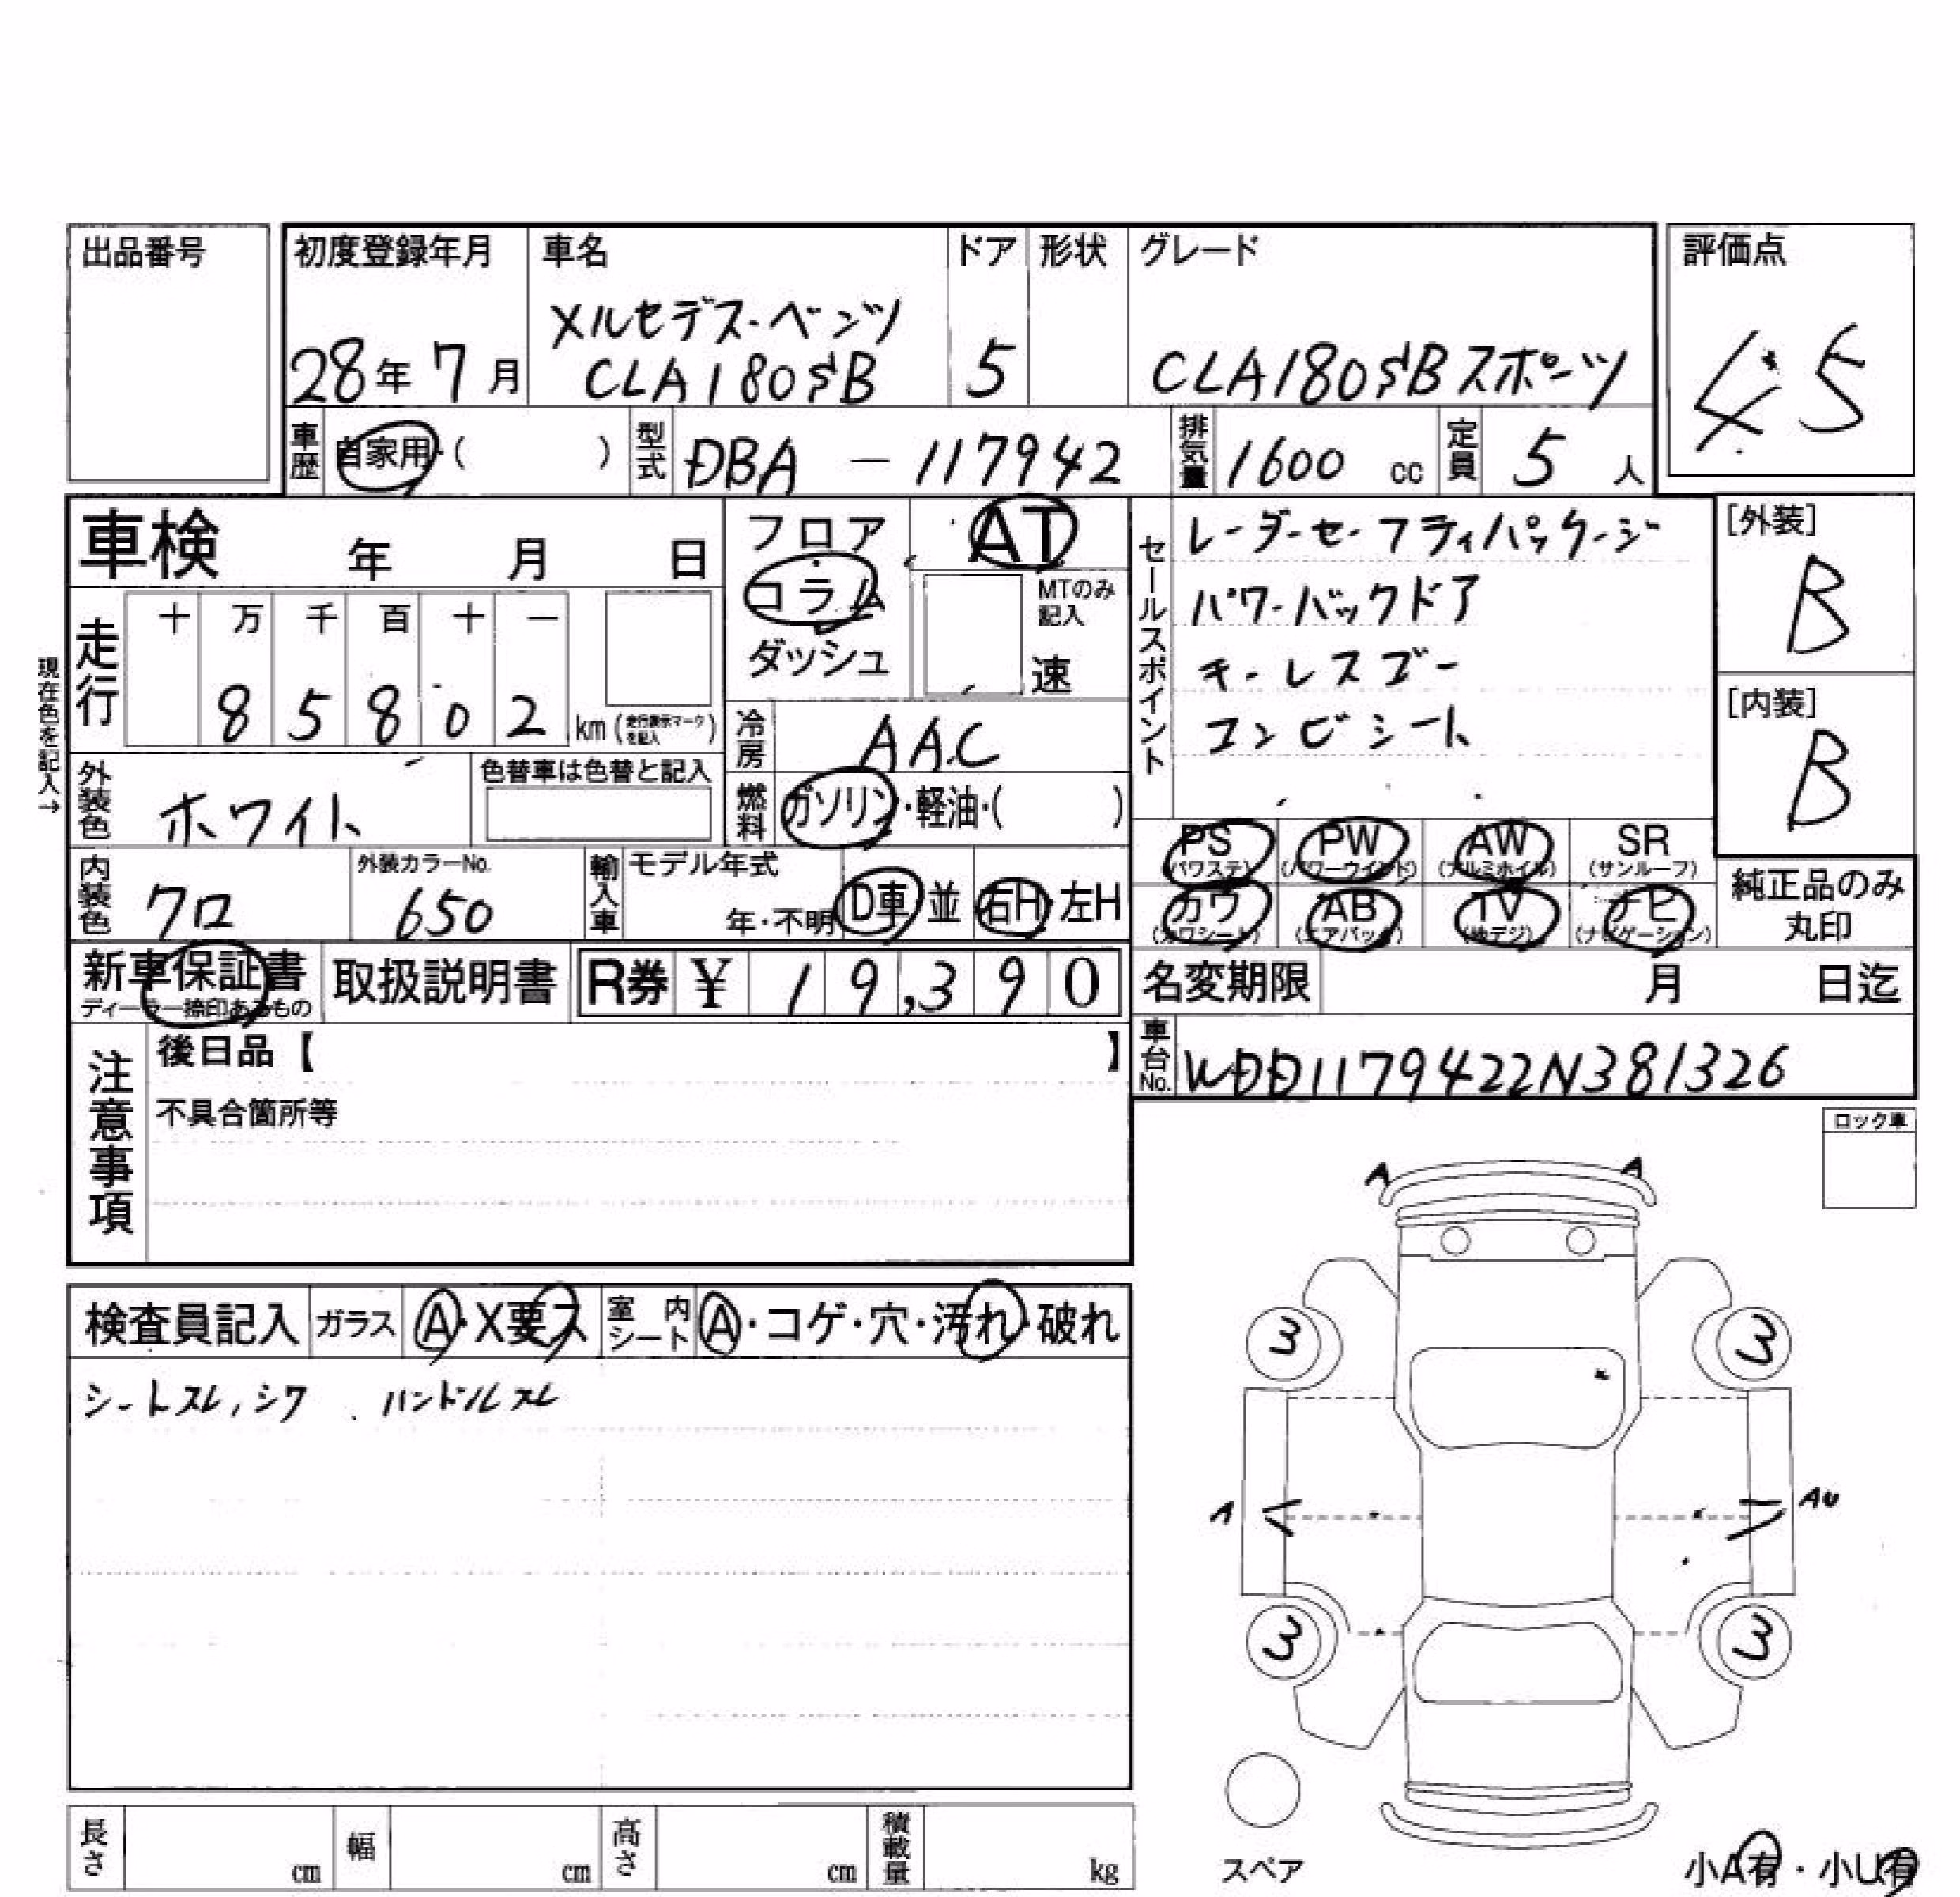 出品番号
初度登録年月 車名 ドア 形状 グレード 評価点
28年 7月 メルセデス・ベンツ CLA180SB 5 CLA180SBスポーツ 4.5
車歴 自家用・( ) 型式 DBA - 117942 排気量 1600 cc 定員 5 人
車検 年 月 日
フロア コラム ダッシュ
AT
MTのみ記入 速
現在色を記入→
走行 十 万 千 百 十 一
8 5 8 0 2 km (走行表示マークを記入)
冷房 AAC
燃料 ガソリン・軽油・( )
外装色 ホワイト 色替車は色替と記入
内装色 クロ 外装カラーNo. 650 輸入車 モデル年式 年・不明 D車 並 右H・左H
セールスポイント
レーダーセーフティパッケージ
パワーバックドア
キーレスゴー
コンビシート
[外装]
B
[内装]
B
PS (パワステ) PW (パワーウインド) AW (アルミホイル) SR (サンルーフ)
カワ (カワシート) AB (エアバック) TV (地デジ) ナビ (ナビゲーション)
純正品のみ丸印
新車保証書 ディーラー捺印あるもの 取扱説明書 R券 ¥ 19,390
名変期限 月 日迄
車台No. WDD1179422N381326
注意事項
後日品【 】
不具合箇所等
ロック車
検査員記入 ガラス A・X要ス 室内シート A・コゲ・穴・汚れ・破れ
シートスレ,シワ ハンドルスレ
A A
3 3
A AU
3 3
スペア
小A有・小U有
長さ cm 幅 cm 高さ cm 積載量 kg